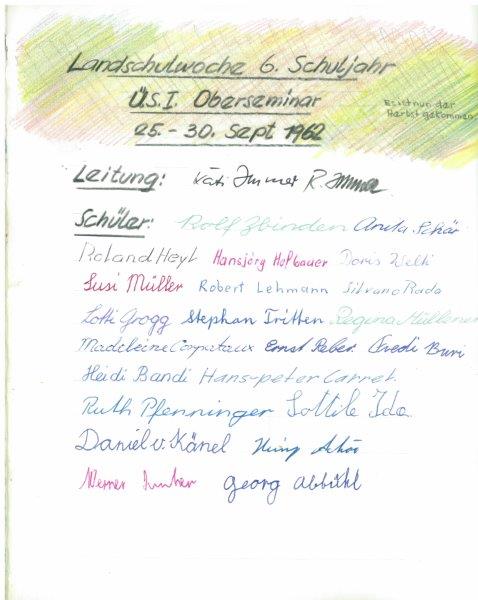 Landschulwoche 6. Schuljahr
Ü.S.I. Oberseminar
Es ist nun der
Herbst gekommen
25.-30. Sept 1962
Leitung: Käti Immer R. Immer
Schüler: Rolf Zbinden Anita Schär
Roland Heyl Hansjörg Hofbauer Doris Welti
Susi Müller Robert Lehmann Silvano Rada
Lotti Grogg Stephan Tritten Regina Müllener
Madeleine Corpataux Ernst Reber Fredi Buri
Heidi Bandi Hans-peter Carret
Ruth Pfenninger Lottile Ida
Daniel v. Känel
Werner Georg Abbühl